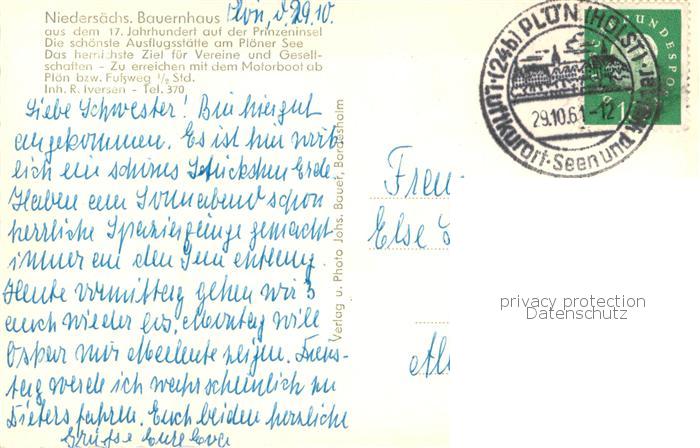 Niedersächs. Bauernhaus
aus dem 17. Jahrhundert auf der Prinzeninsel
Die schönste Ausflugsstätte am Plöner See
Das herrlichste Ziel für Vereine und Gesell-
schaften - Zu erreichen mit dem Motorboot ab
Plön bzw. Fußweg 1/2 Std.
Inh. R. Iversen - Tel. 370
Plön, d. 29.10.
Liebe Schwester! Bin hier gut
angekommen. Es ist hier wirk-
lich ein schönes Stückchen Erde.
Haben am Sonnabend schon
herrliche Spaziergänge gemacht
immer an den Seen entlang.
Heute vormittag gehen wir 3
auch wieder los. Montag will
Oskar mir Malente zeigen. Diens-
tag werde ich wahrscheinlich zu
Dieters fahren. Euch beiden herzliche
Grüsse Eure
Verlag u. Photo Johs. Bauer, Bordesholm
(24b) PLÖN (HOLST)
29.10.61-12
Luftkurort · Seen und
BUNDESPO
Frau
Else
privacy protection
Datenschutz